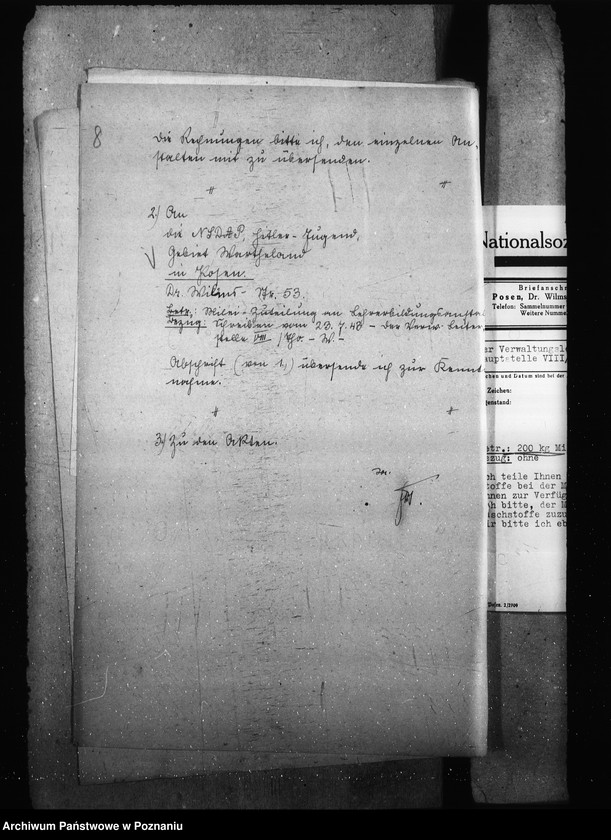 8
Die Rechnungen bitte ich, den einzelnen An-
stalten mit zu übersenden.
〃 〃
2) An
die NSDAP, Hitler-Jugend,
Gebiet Wartheland
in Posen.
Dr. Wilms- Str. 53.
Betr.: Milei-Zuteilung an Lehrerbildungsanstal
Bezug: Schreiben vom 23.7.43 - Der Verw. Leiter
stelle VIII /Scho. - W. -
Abschrift (von 1.) übersende ich zur Kennt-
nahme.
〃 〃
3.) Zu den Akten.
Nationalsoz
Briefanschr
Posen, Dr. Wilms
Telefon: Sammelnummer
Weitere Numme
er Verwaltungsle
auptstelle VIII/
chen und Datum sind bei der
Zeichen:
genstand:
etr.: 200 kg Mi
ezug: ohne
ch teile Ihnen
toffe bei der M
hnen zur Verfüg
ch bitte, der M
schstoffe zuzu
ir bitte ich eb
Posen. 2/1940
Archiwum Państwowe w Poznaniu